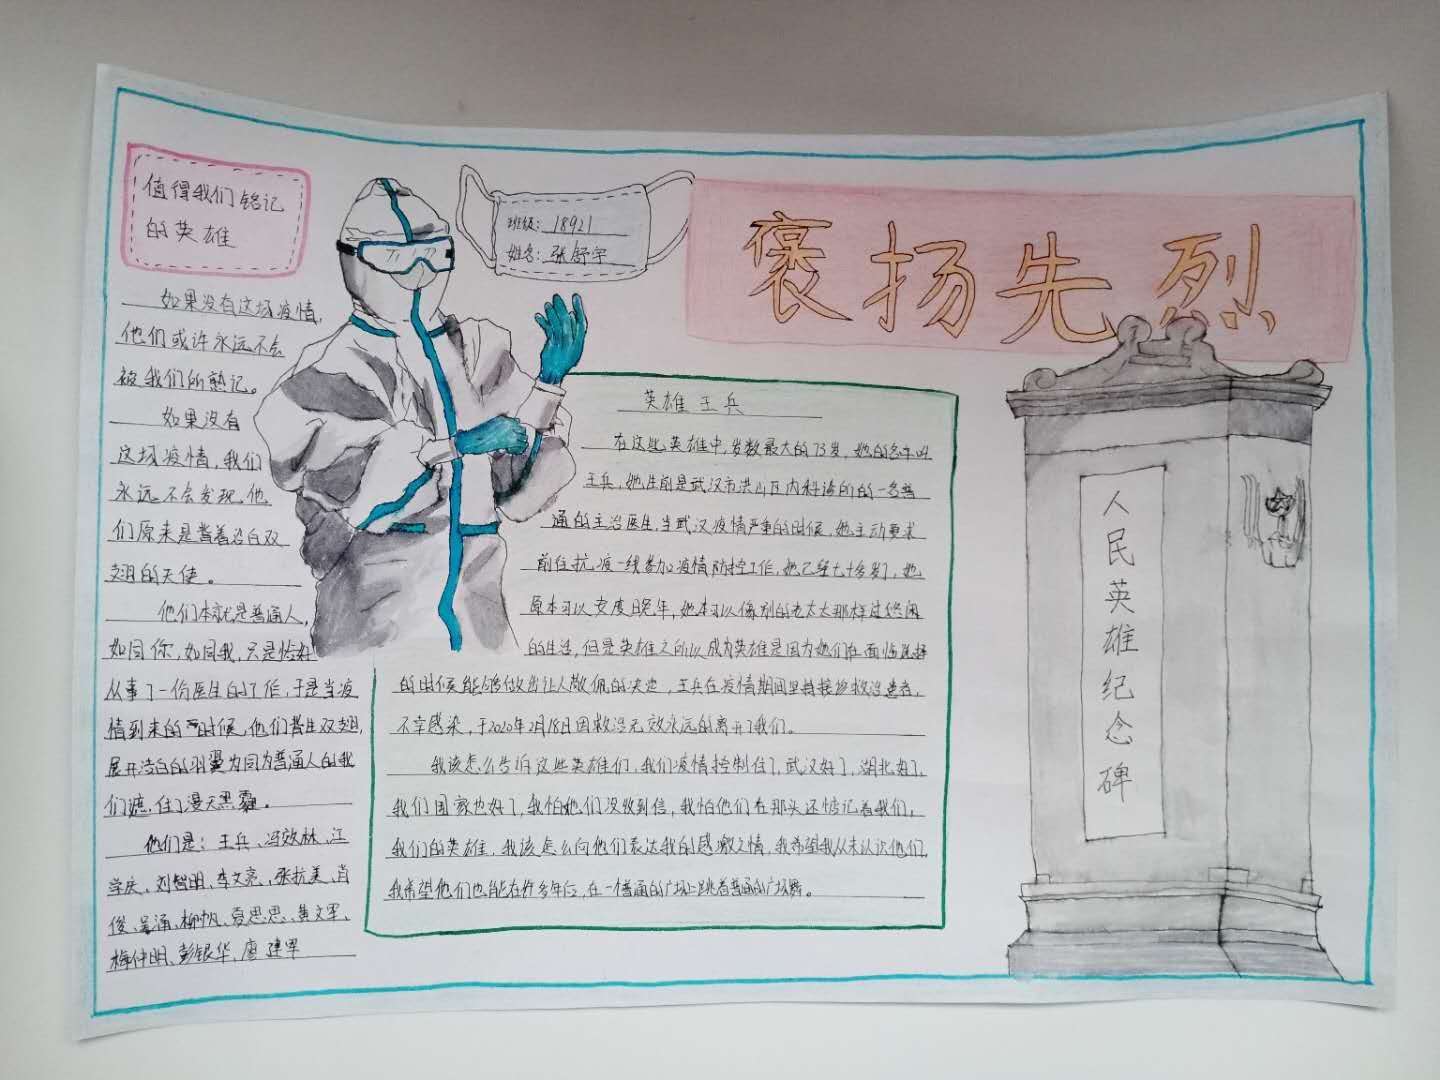 值得我们铭记
的英雄
如果没有这场疫情,
他们或许永远不会
被我们所熟记。
如果没有
这场疫情,我们
永远不会发现,他
们原来是普着洁白双
翅的天使。
他们本就是普通人,
如同你,如同我,只是恰好
从事了一份医生的工作,于是当疫
情到来的时候,他们普生双翅,
展开洁白的羽翼为同为普通人的我
们遮住了漫天黑霾。
他们是:王兵、冯效林、江
学庆、刘智明、李文亮、张抗美、肖
俊、吴涌、柳帆、夏思思、黄文军、
梅仲明、彭银华、廖建军
班级:18921
姓名:张舒宇
褒扬先烈
英雄王兵
在这些英雄中,岁数最大的73岁,她的名字叫
王兵,她生前是武汉市洪山区内科诊所的一名普
通的主治医生,当武汉疫情严重的时候,她主动要求
前往抗疫一线参加疫情防控工作,她已经七十多岁了,她
原本可以安度晚年,她本可以像别的老太太那样过悠闲
的生活,但是英雄之所以成为英雄是因为她们在面临选择
的时候能够做出让人敬佩的决定,王兵在疫情期间坚持接诊救治患者,
不幸感染,于2020年2月18日因救治无效永远的离开了我们。
我该怎么告诉这些英雄们,我们疫情控制住了,武汉好了,湖北好了,
我们国家也好了,我怕她们没收到信,我怕他们在那头还惦记着我们,
我们的英雄,我该怎么向他们表达我的感激之情,我希望我从未认识他们,
我希望他们也能在许多年后,在一个普通的广场上跳着普通的广场舞。
人民英雄纪念碑